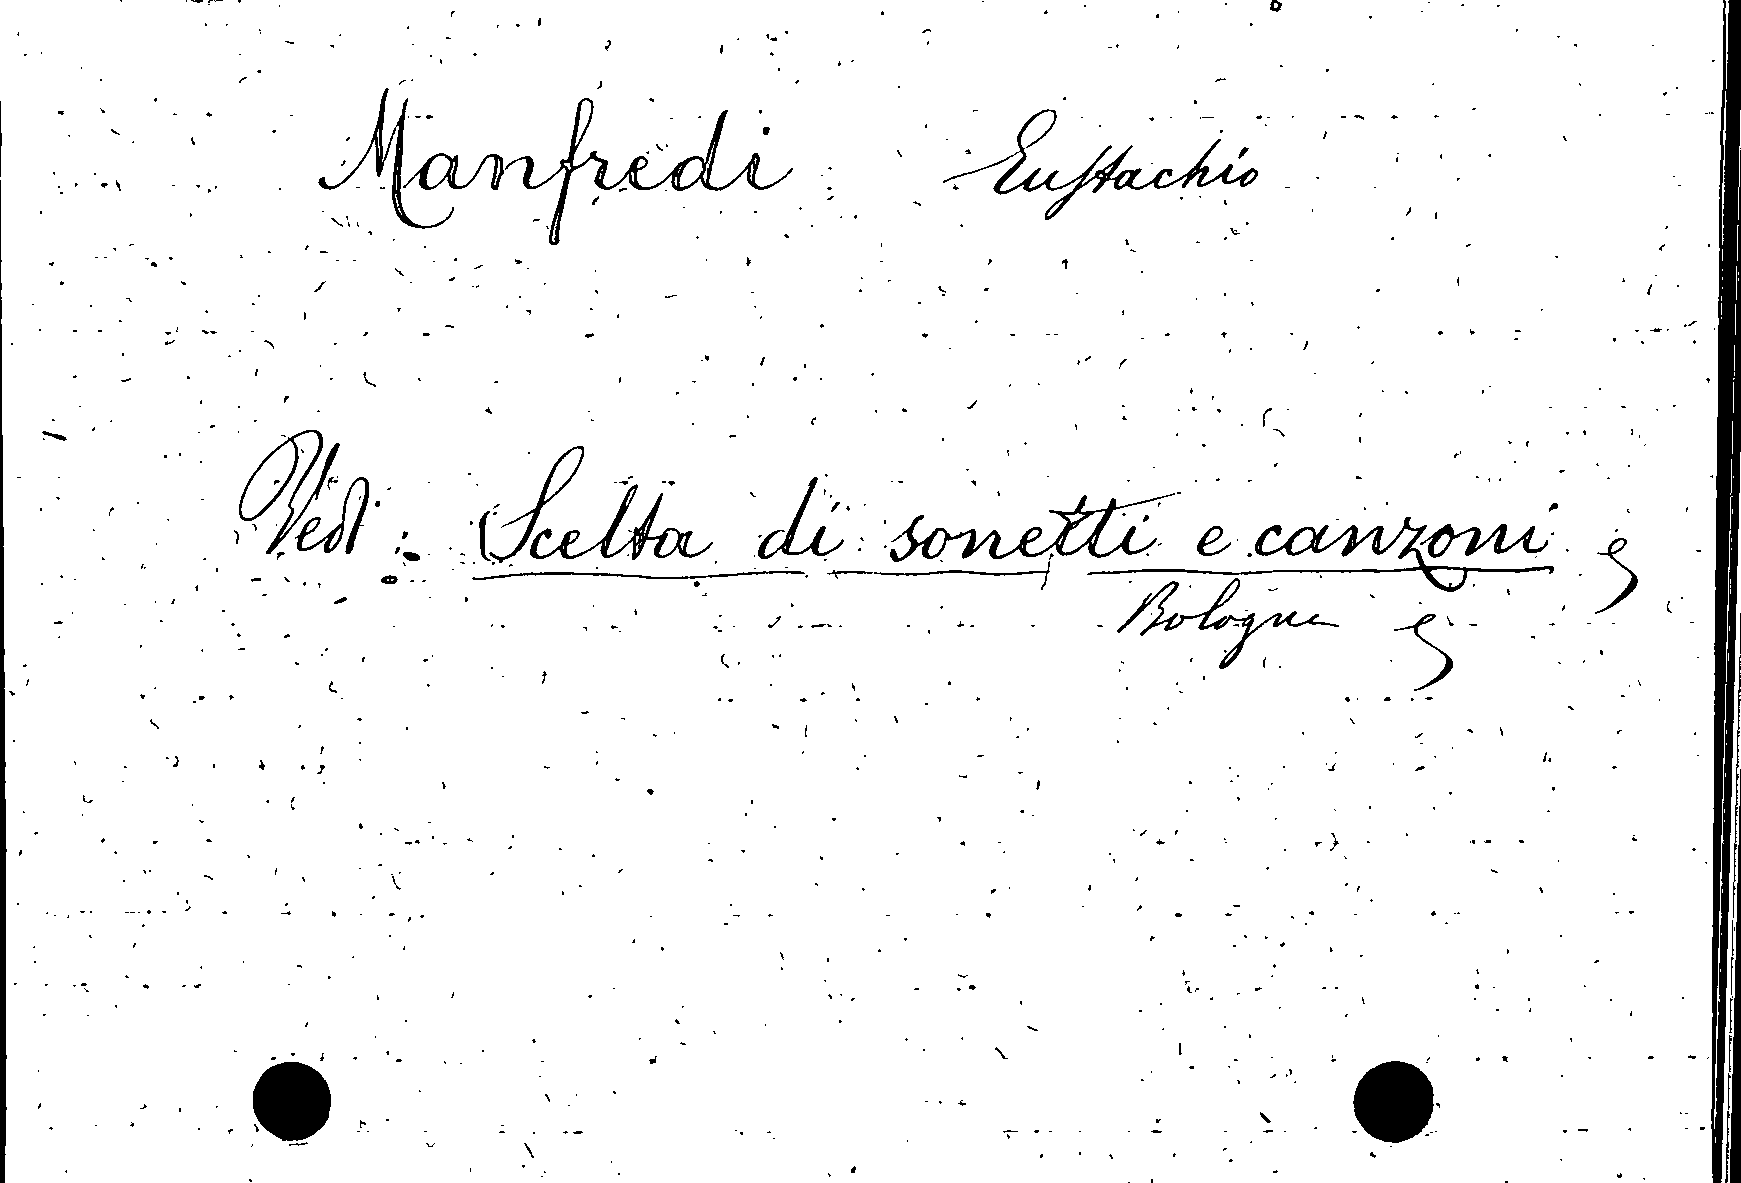 Manfredi Eustachio
Vedi: Scelta di sonetti e canzoni
Bologna